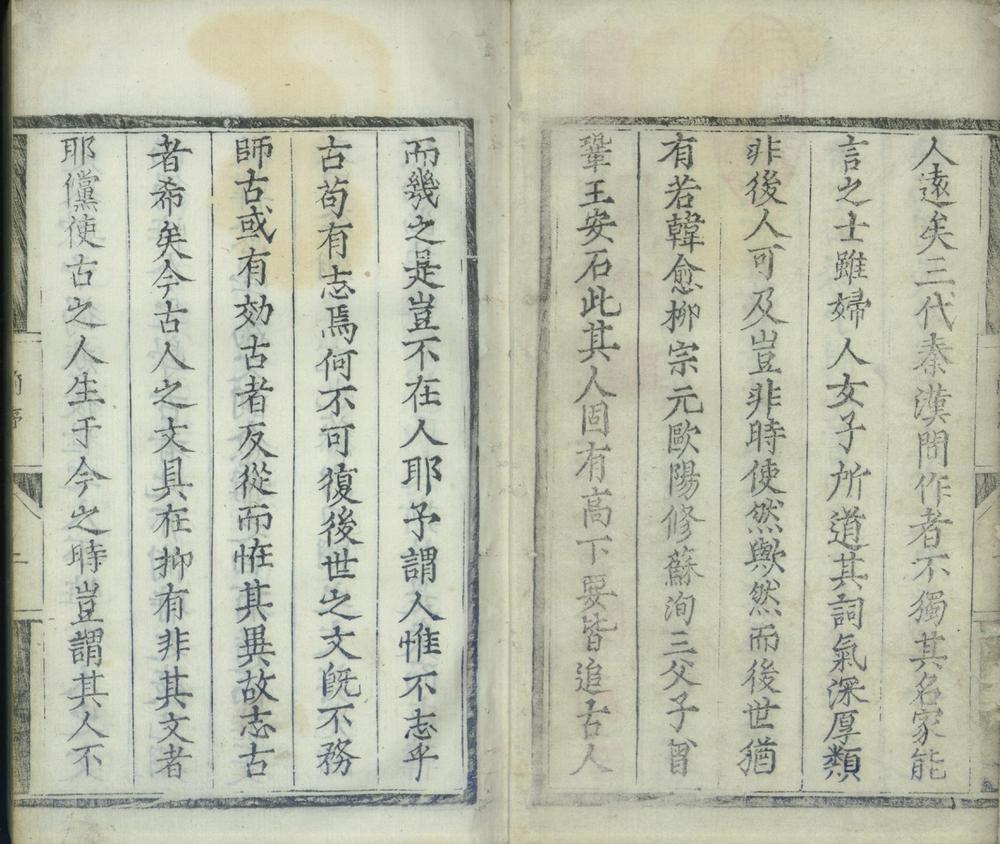 人遠矣三代秦漢間作者不獨其名家能
言之士雖婦人女子所道其詞氣深厚類
非後人可及豈非時使然歟然而後世猶
有若韓愈柳宗元歐陽修蘇洵三父子曾
鞏王安石此其人固有高下要皆追古人
而幾之是豈不在人耶予謂人惟不志乎
古苟有志焉何不可復後世之文旣不務
師古或有効古者反從而恠其異故志古
者希矣今古人之文具在抑有非其文者
耶儻使古之人生于今之時豈謂其人不